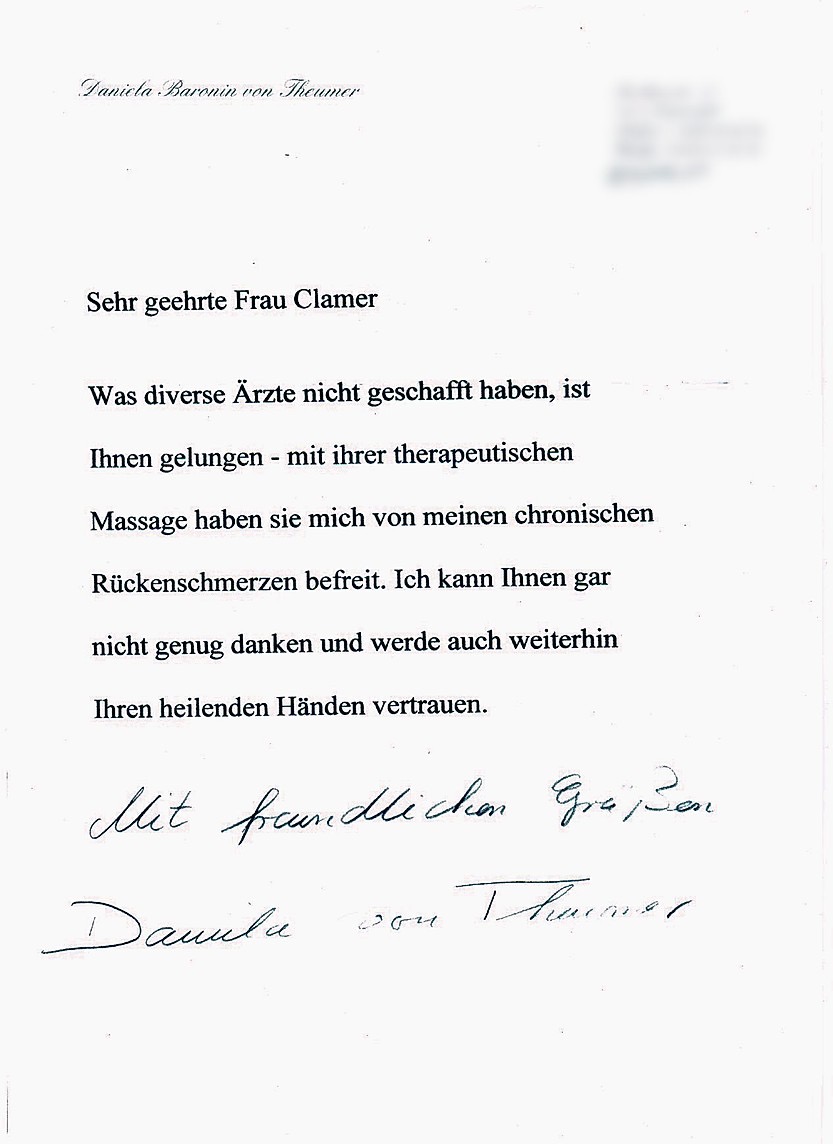 Daniela Baronin von Theumer
Sehr geehrte Frau Clamer
Was diverse Ärzte nicht geschafft haben, ist
Ihnen gelungen - mit ihrer therapeutischen
Massage haben sie mich von meinen chronischen
Rückenschmerzen befreit. Ich kann Ihnen gar
nicht genug danken und werde auch weiterhin
Ihren heilenden Händen vertrauen.
Mit freundlichen Grüßen
Daniela von Theumer